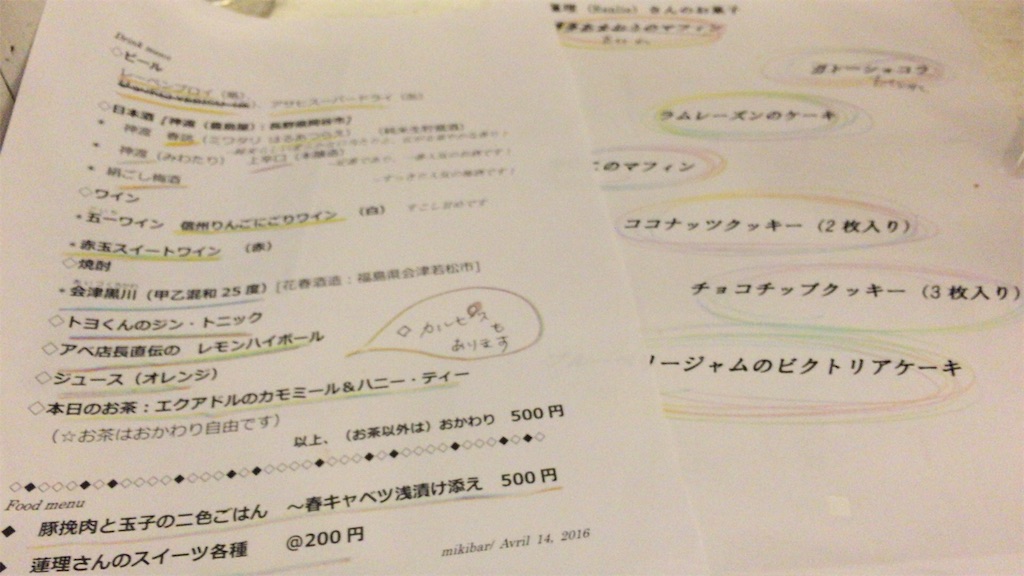 Drink menu
◇ビール
アサヒスーパードライ（缶）
◇日本酒［神渡（豊島屋）：長野県岡谷市］
* 神渡 春談（ミワタリ はるあつらえ）（純米生貯蔵酒）
* 神渡（みわたり） 上辛口（本醸造）
* 絹ごし梅酒
◇ワイン
* 五一ワイン 信州りんごにごりワイン （白） すこし甘めです
* 赤玉スイートワイン （赤）
◇焼酎
* 会津黒川（甲乙混和25度）［花春酒造：福島県会津若松市］
◇トヨくんのジン・トニック
◇アベ店長直伝の レモンハイボール
◇ジュース（オレンジ）
◇本日のお茶：エクアドルのカモミール＆ハニー・ティー
（☆お茶はおかわり自由です）
以上、（お茶以外は）おかわり 500円
◇カルピスも
あります
Food menu
◆ 豚挽肉と玉子の二色ごはん ～春キャベツ浅漬け添え 500円
◆ 蓮理さんのスイーツ各種 @200円
mikibar/ Avril 14, 2016
蓮理（Renlie）さんのお菓子
ガトーショコラ
ラムレーズンのケーキ
のマフィン
ココナッツクッキー（2枚入り）
チョコチップクッキー（3枚入り）
リージャムのビクトリアケーキ